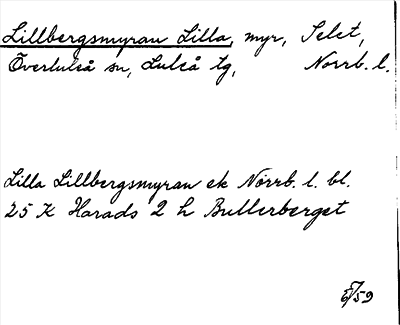 Lillbergsmyran Lilla, myr, Selet,
Överluleå sn, Luleå tg, Norrb. l.
Lilla Lillbergsmyran ek Norrb. l. bl.
25 K Harads 2 h Bullerberget